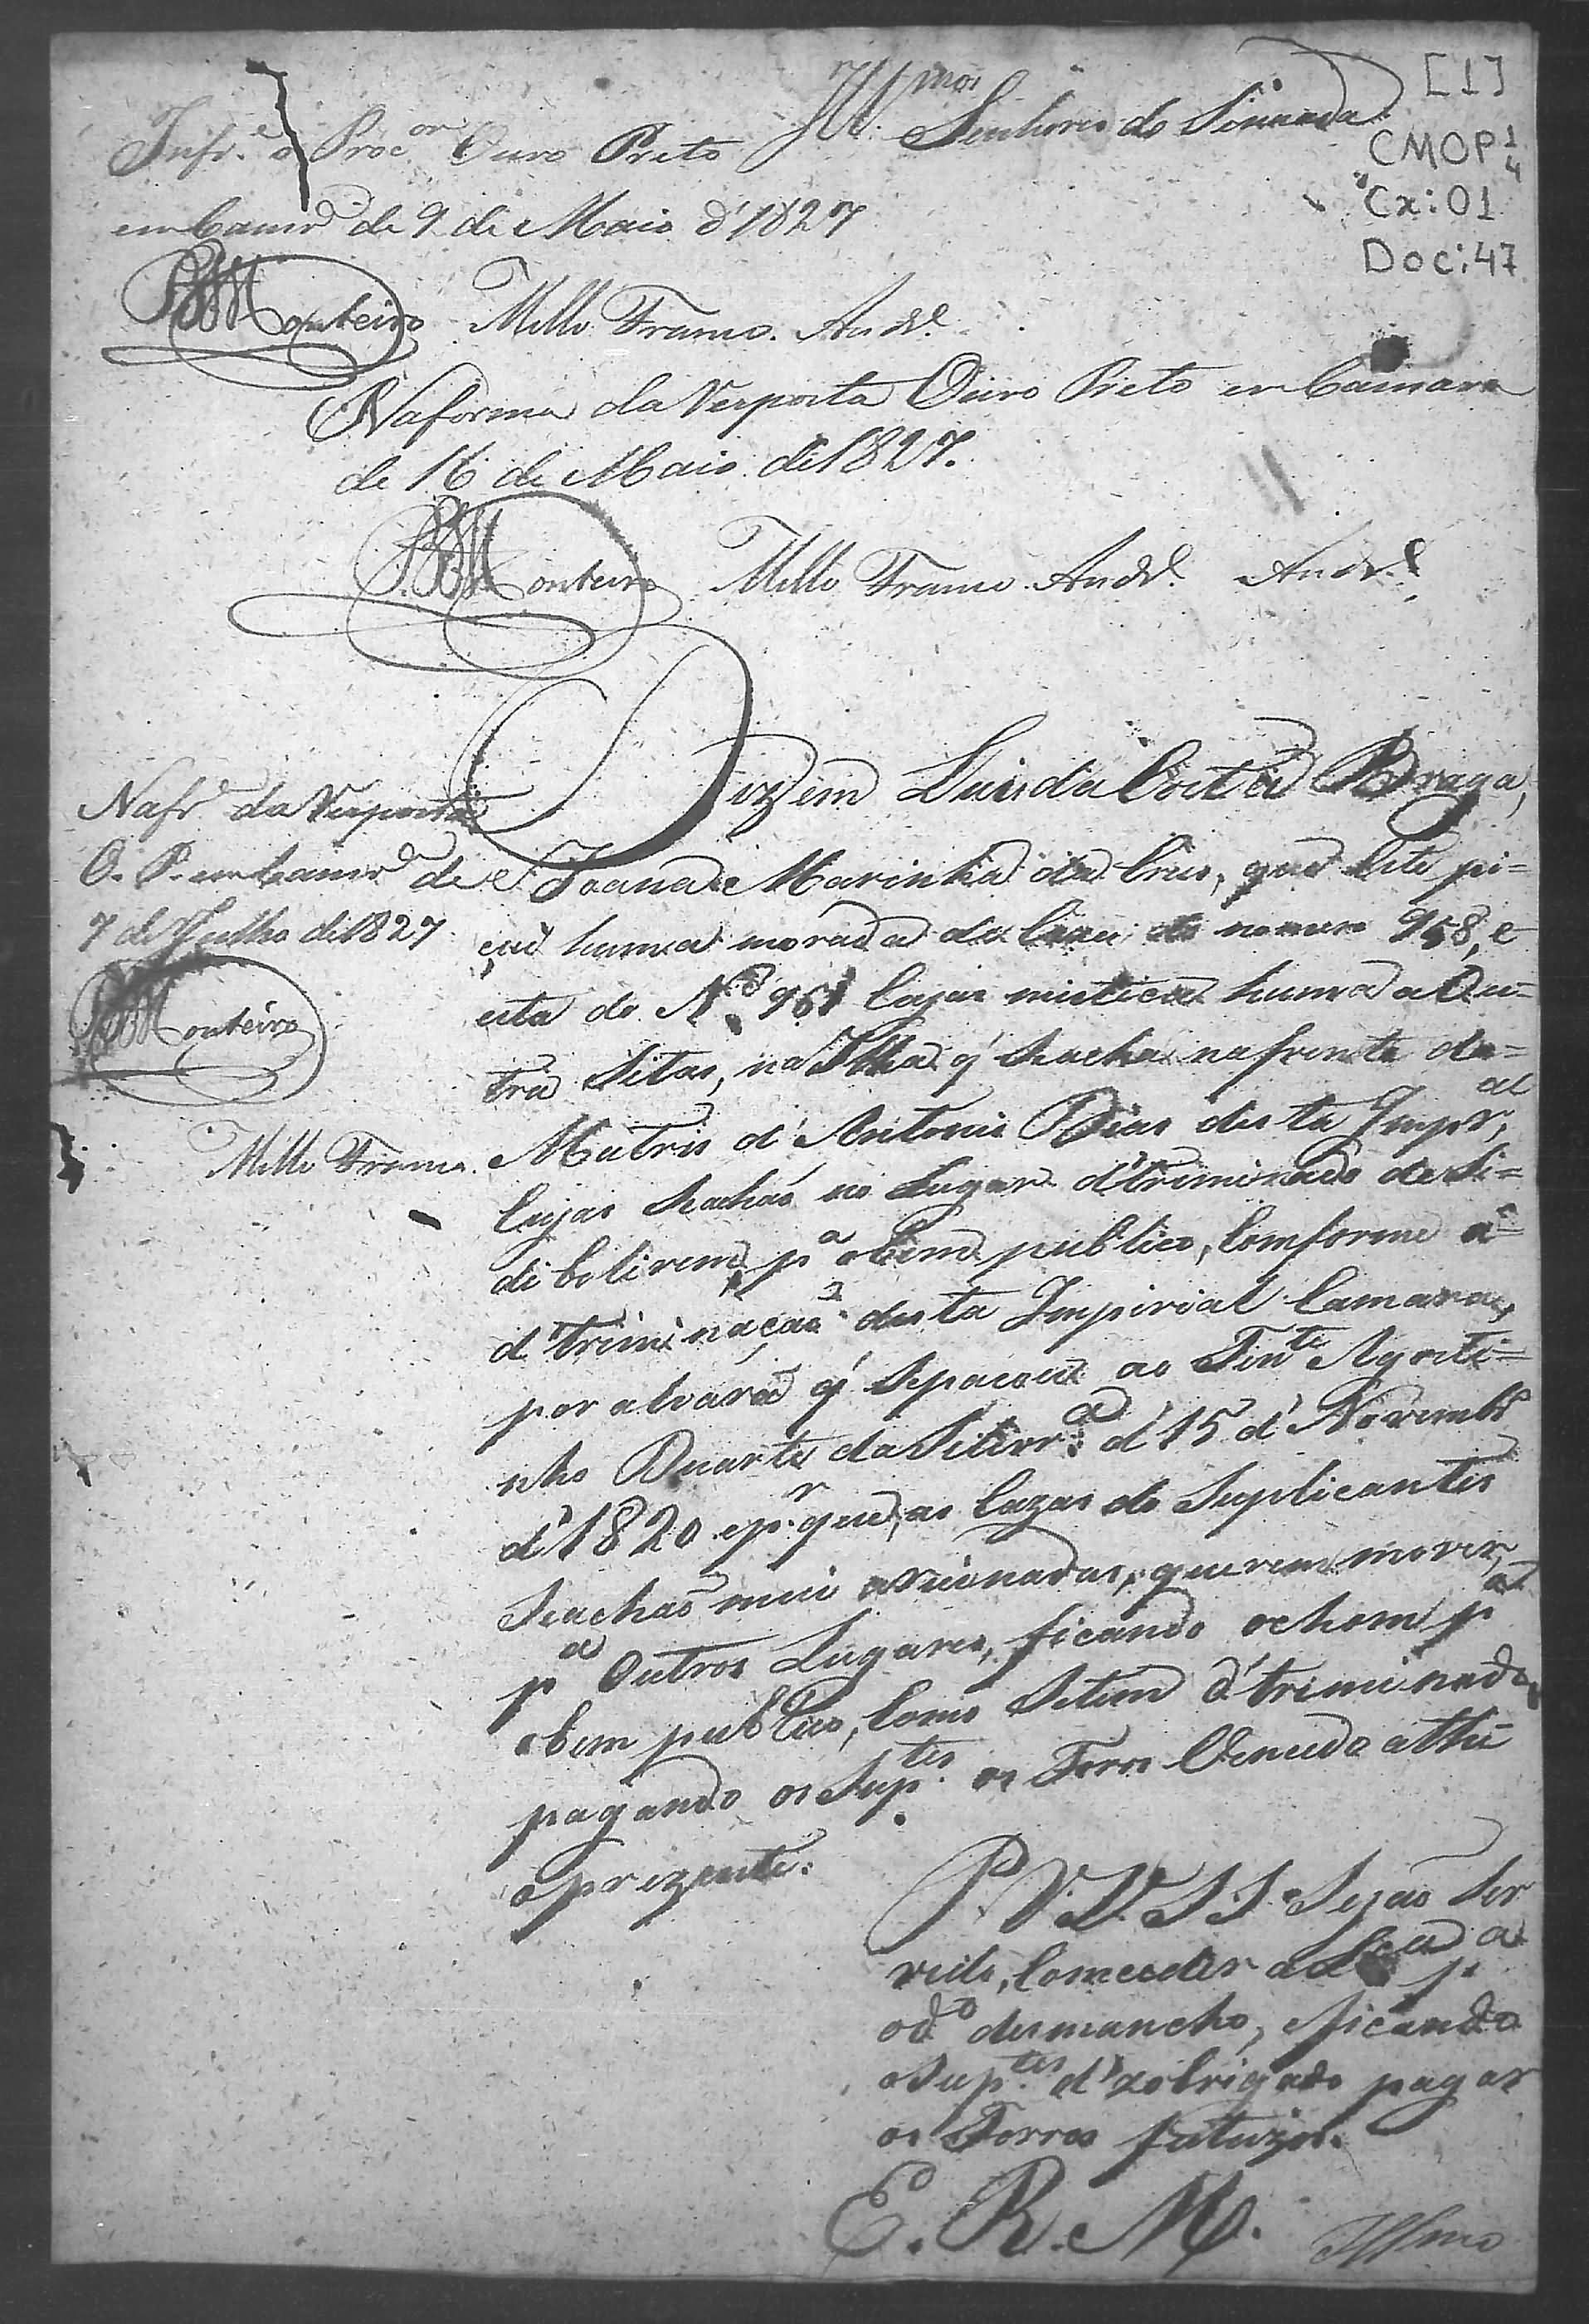 [1]
CMOP 1/4
Cx: 01
Doc: 47
Illmos Senhores do Sennado
Infe. o Procor Ouro Preto
em Camra de 9 de Maio d'1827
Monteiro Mello Franco. Ande.
Na forma da Resposta Ouro Preto em Camara
de 16 de Maio de 1827.
Monteiro Mello Franco Ande. Ande.
Na fra da Resposta
O. P. em Camra de
7 de Julho de 1827
Monteiro
Mello Franco.
Dizem Luis da Costa Braga,
e Joana Marinha da Crus, que este pi=
huma morada de Cazas do numero 958, e
esta do No. 961 Cazas misticas huma a Ou=
tra Sitas, na Ilha q' Seacha na frente da=
Matris d'Antonio Dias desta Imperal,
Cujas Sachaõ no Lugar d'triminado de Si=
dibolirem, pa obem publico, Comforme a=
d'triminaçaõ desta Impirial Camara,
por alvará q' Sepacou ao Tente Agosti=
nho Duarte da d'15 d'Novembro
d'1820 epr que, as Cazas do Suplicantes
Seachaõ mui arruinadas, querem mover,
pa Outros Lugares, ficando ocham pa
obem publico, Como Setem d'triminado,
pagando os Suptes. os Foros Vencido athe
oprezente.
P. V. V. S S. Sejaõ Ser
vido, Comceder a Lca pa
odo desmancho, eficando
o Suptes d'zobrigado pagar
os Forros futuros.
E. R. M.